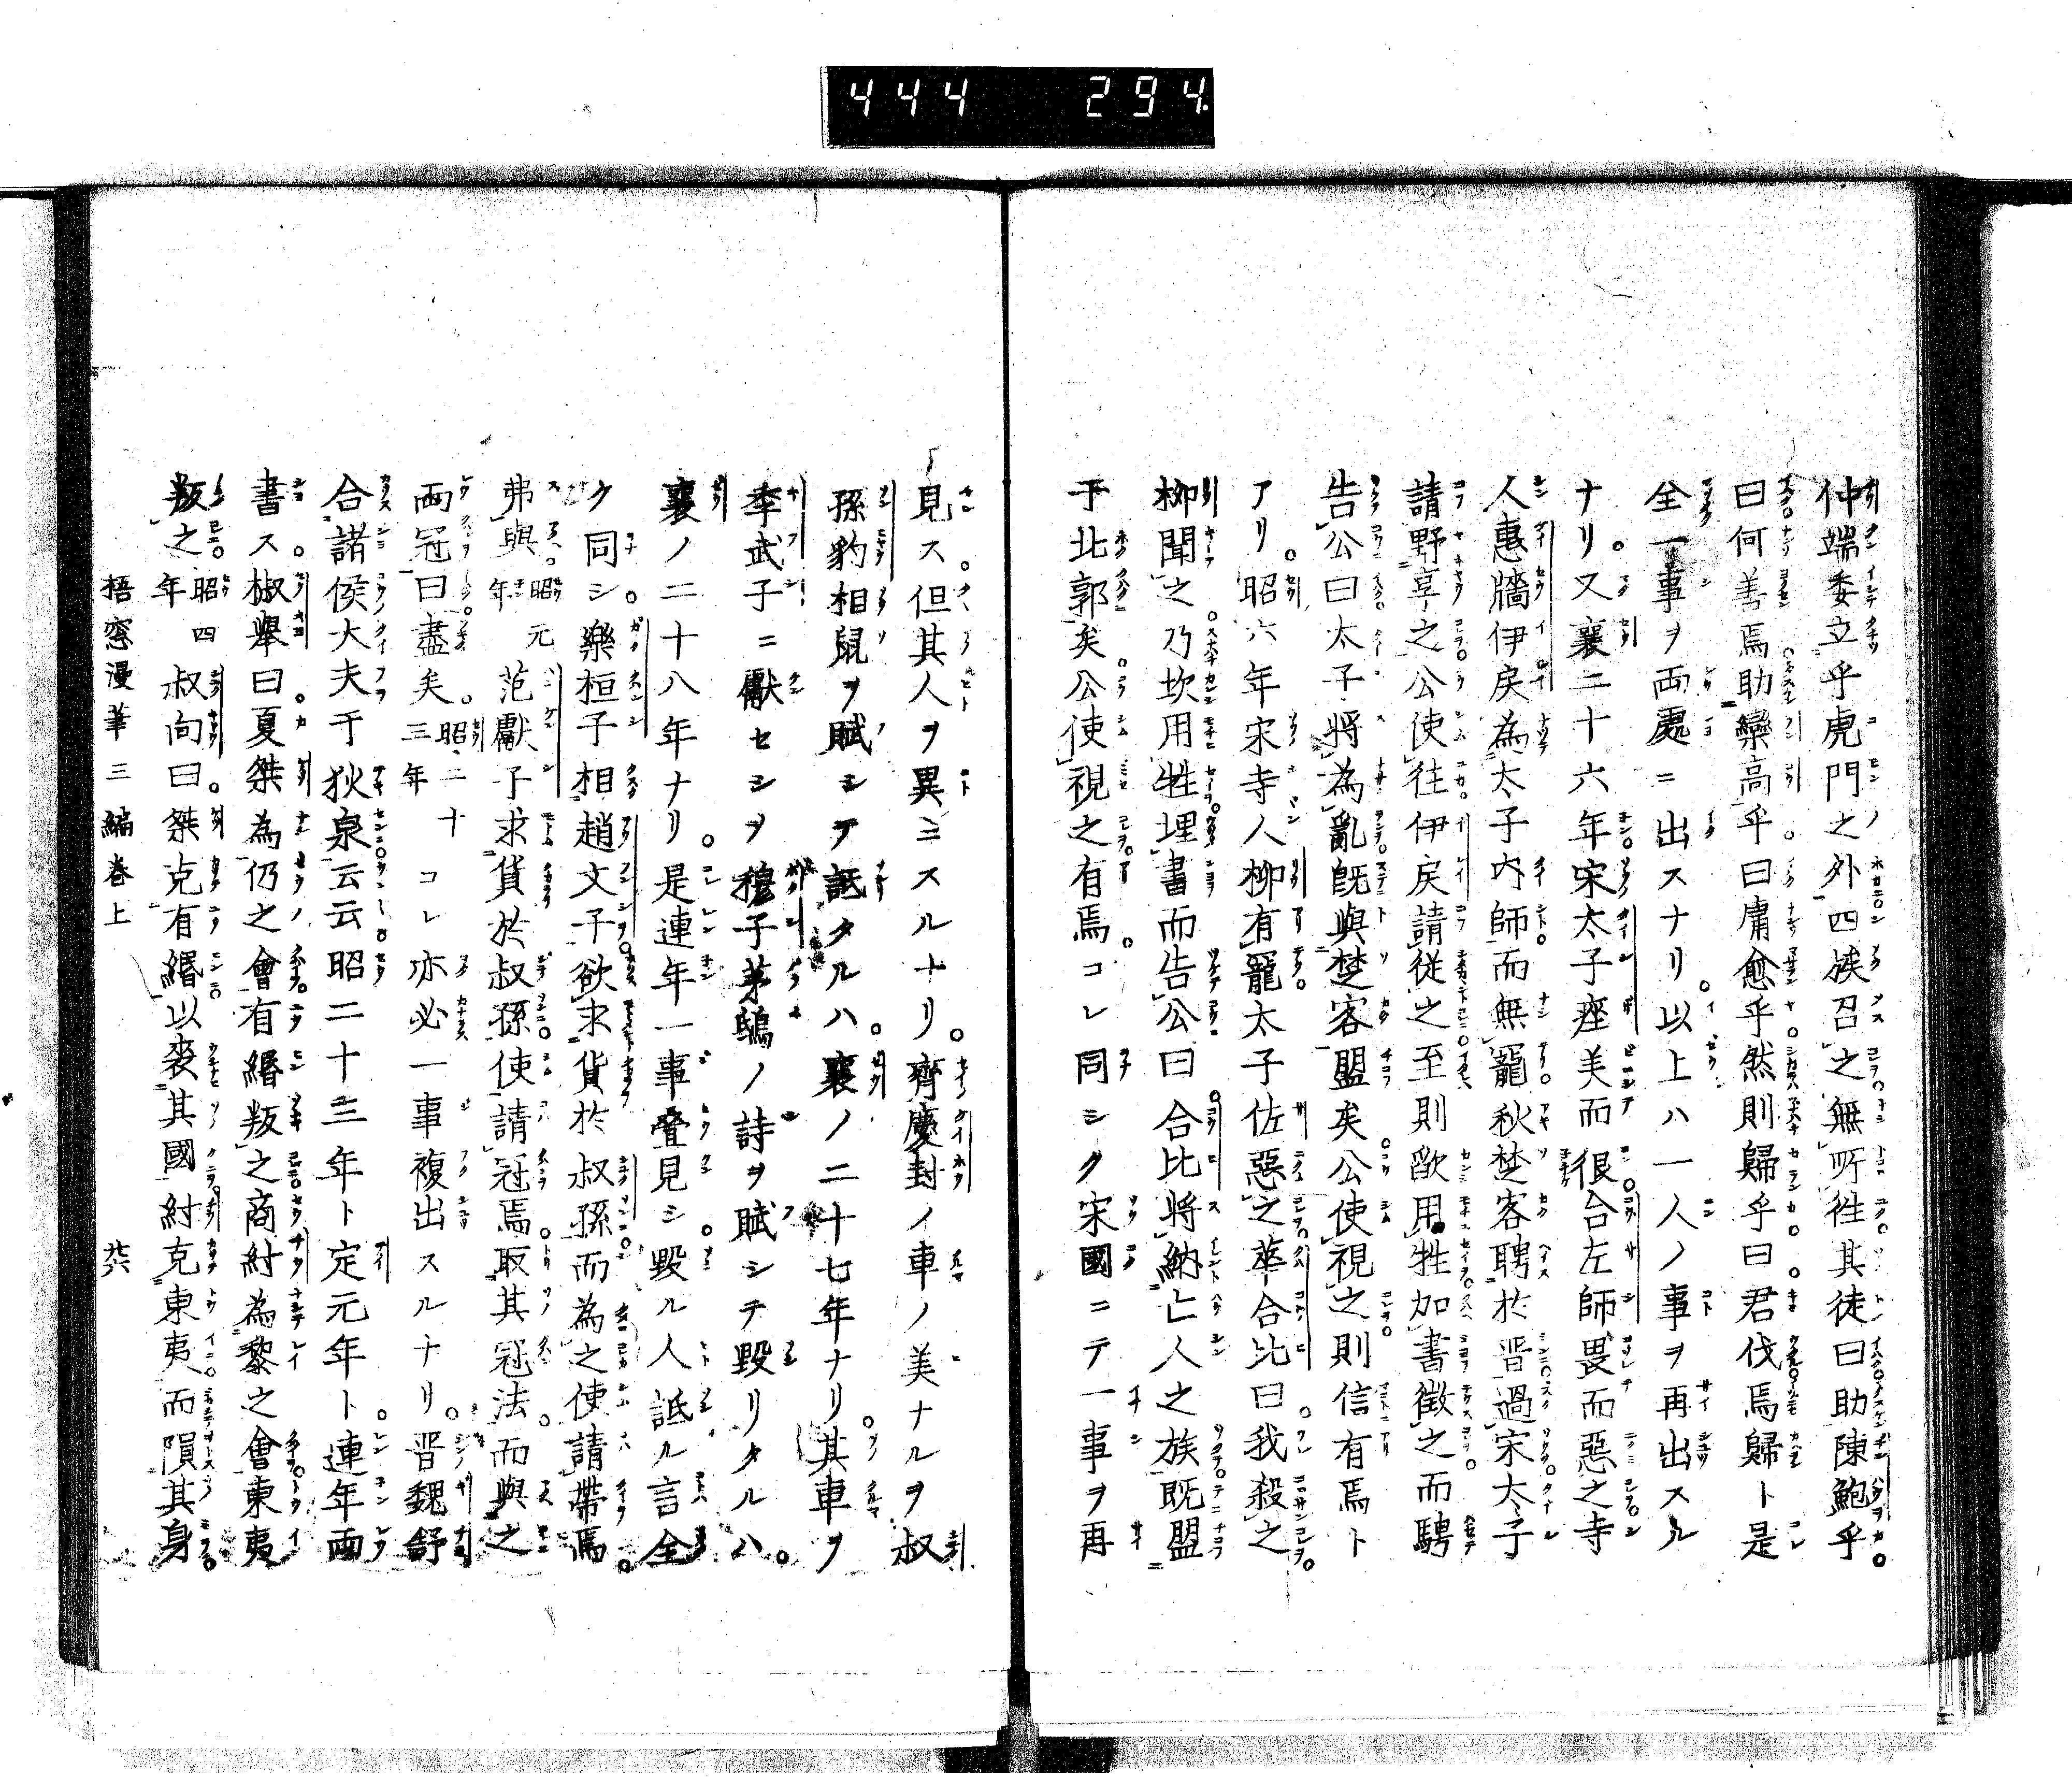 444 294
仲端委立乎虎門之外四族召之無所往其徒曰助陳鮑乎
曰何善焉助欒高乎曰庸愈乎然則歸乎曰君伐焉歸ト是
全一事ヲ両處ニ出スナリ。以上ハ一人ノ事ヲ再出スル
ナリ。又襄二十六年宋太子痤美而很合左師畏而惡之寺
人惠牆伊戾為太子内師而無寵秋楚客聘於晋過宋太子
請野享之公使往伊戾請從之至則歃用牲加書徵之而騁
告公曰太子將為亂既與楚客盟矣公使視之則信有焉ト
アリ。昭六年宋寺人柳有寵太子佐惡之華合比曰我殺之
柳聞之乃坎用牲埋書而告公曰合比將納亡人之族既盟
于北郭矣公使視之有焉。コレ同シク宋國ニテ一事ヲ再
見ス但其人ヲ異ニスルナリ。齊慶封ノ車ノ美ナルヲ叔
孫豹相鼠ヲ賦シテ詆タルハ。襄ノ二十七年ナリ。其車ヲ
季武子ニ獻セシヲ穆子茅鴟ノ詩ヲ賦シテ毀リタルハ。
襄ノ二十八年ナリ。是連年一事疊見シ毀ル人詆ル言全
ク同シ。樂桓子相趙文子欲求貨於叔孫而為之使請帶焉
弗與。昭元年范獻子求貨於叔孫使請冠焉取其冠法而與之
両冠曰盡矣。昭二十三年コレ亦必一事複出スルナリ。晋魏舒
合諸侯大夫于狄泉云云昭二十三年ト定元年ト連年両
書ス。椒舉曰夏桀為仍之會有緡叛之商紂為黎之會東夷
叛之昭四年叔向曰桀克有緡以喪其國紂克東夷而隕其身
梧窓漫筆三編巻上 廿六